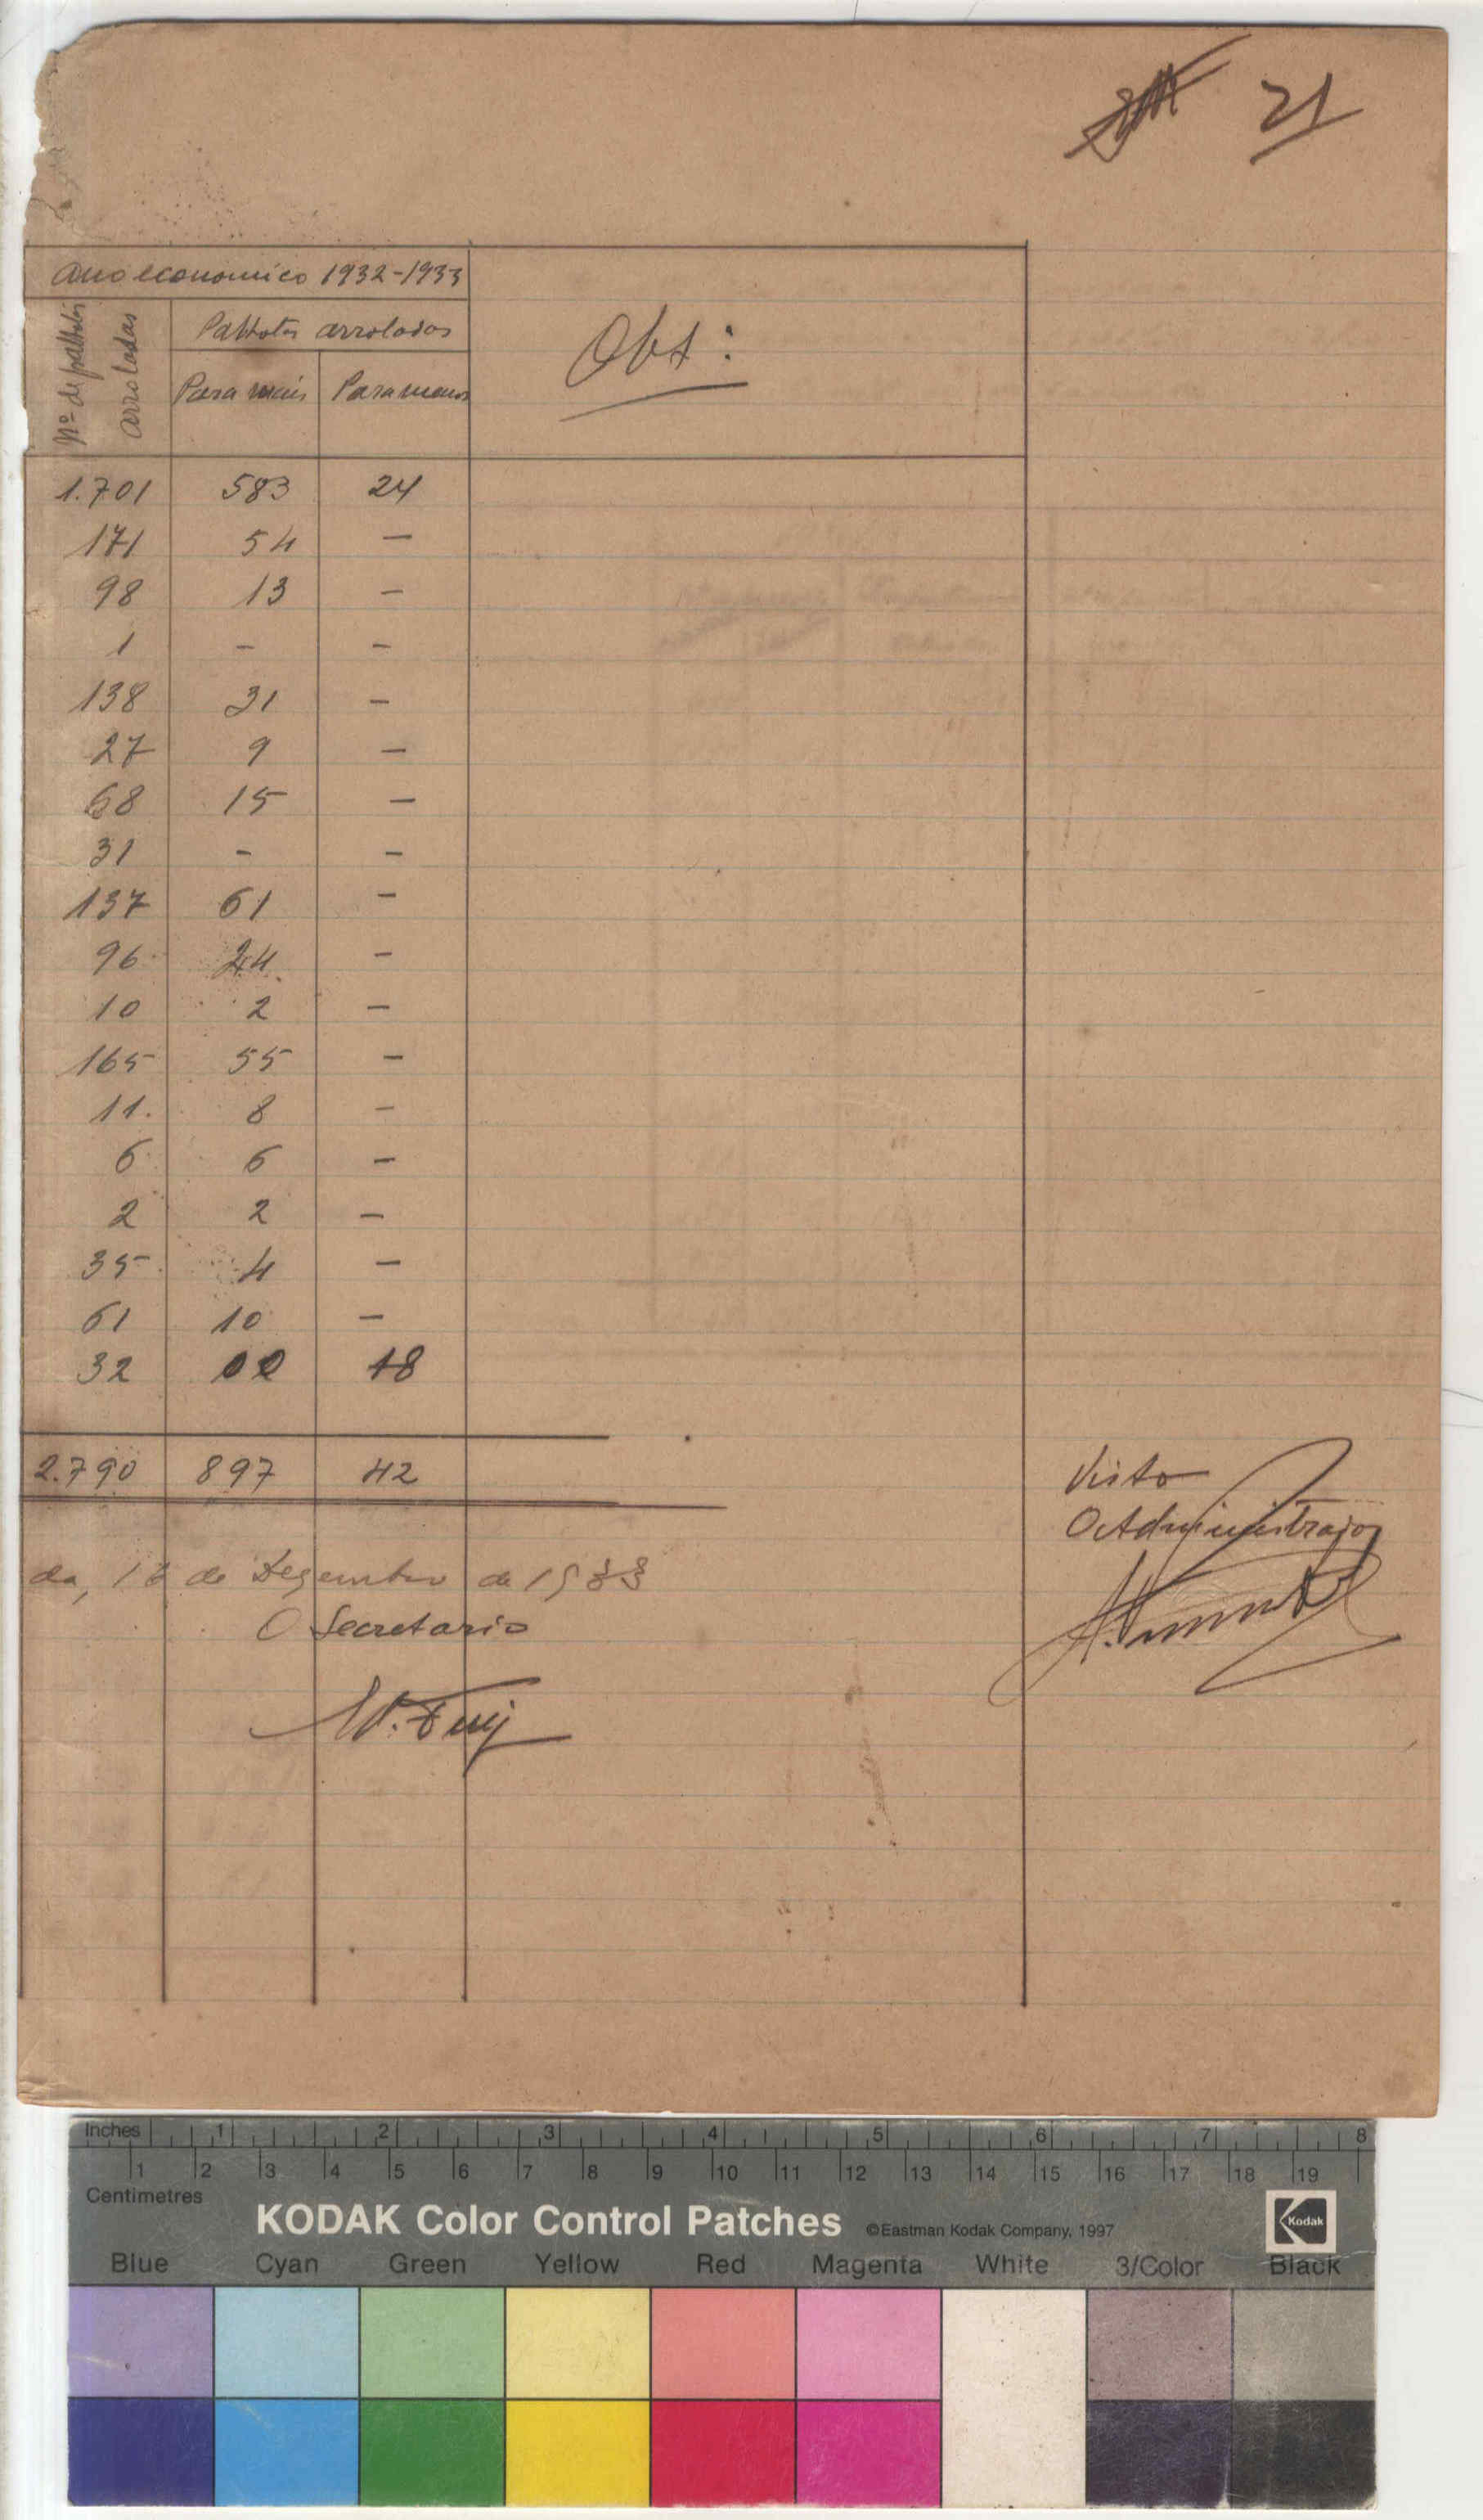 21
Ano economico 1932-1933
Nº de palhotas arroladas
Palhotas arroladas
Para mais Para menos
Obs:
1.701 583 24
171 54 —
98 13 —
1 - -
138 31 -
27 9 —
68 15 —
31 - -
137 61 -
96 24 -
10 2 —
165 55 —
11. 8 -
6 6 —
2 2 —
35 4 —
61 10 —
32 00 18
2.790 897 42
Visto
O Administrador
da, de Dezembro de 1933
O Secretario
Inches 1 2 3 4 5 6 7 8
1 2 3 4 5 6 7 8 9 10 11 12 13 14 15 16 17 18 19
Centimetres
KODAK Color Control Patches ©Eastman Kodak Company, 1997 Kodak
Blue Cyan Green Yellow Red Magenta White 3/Color Black